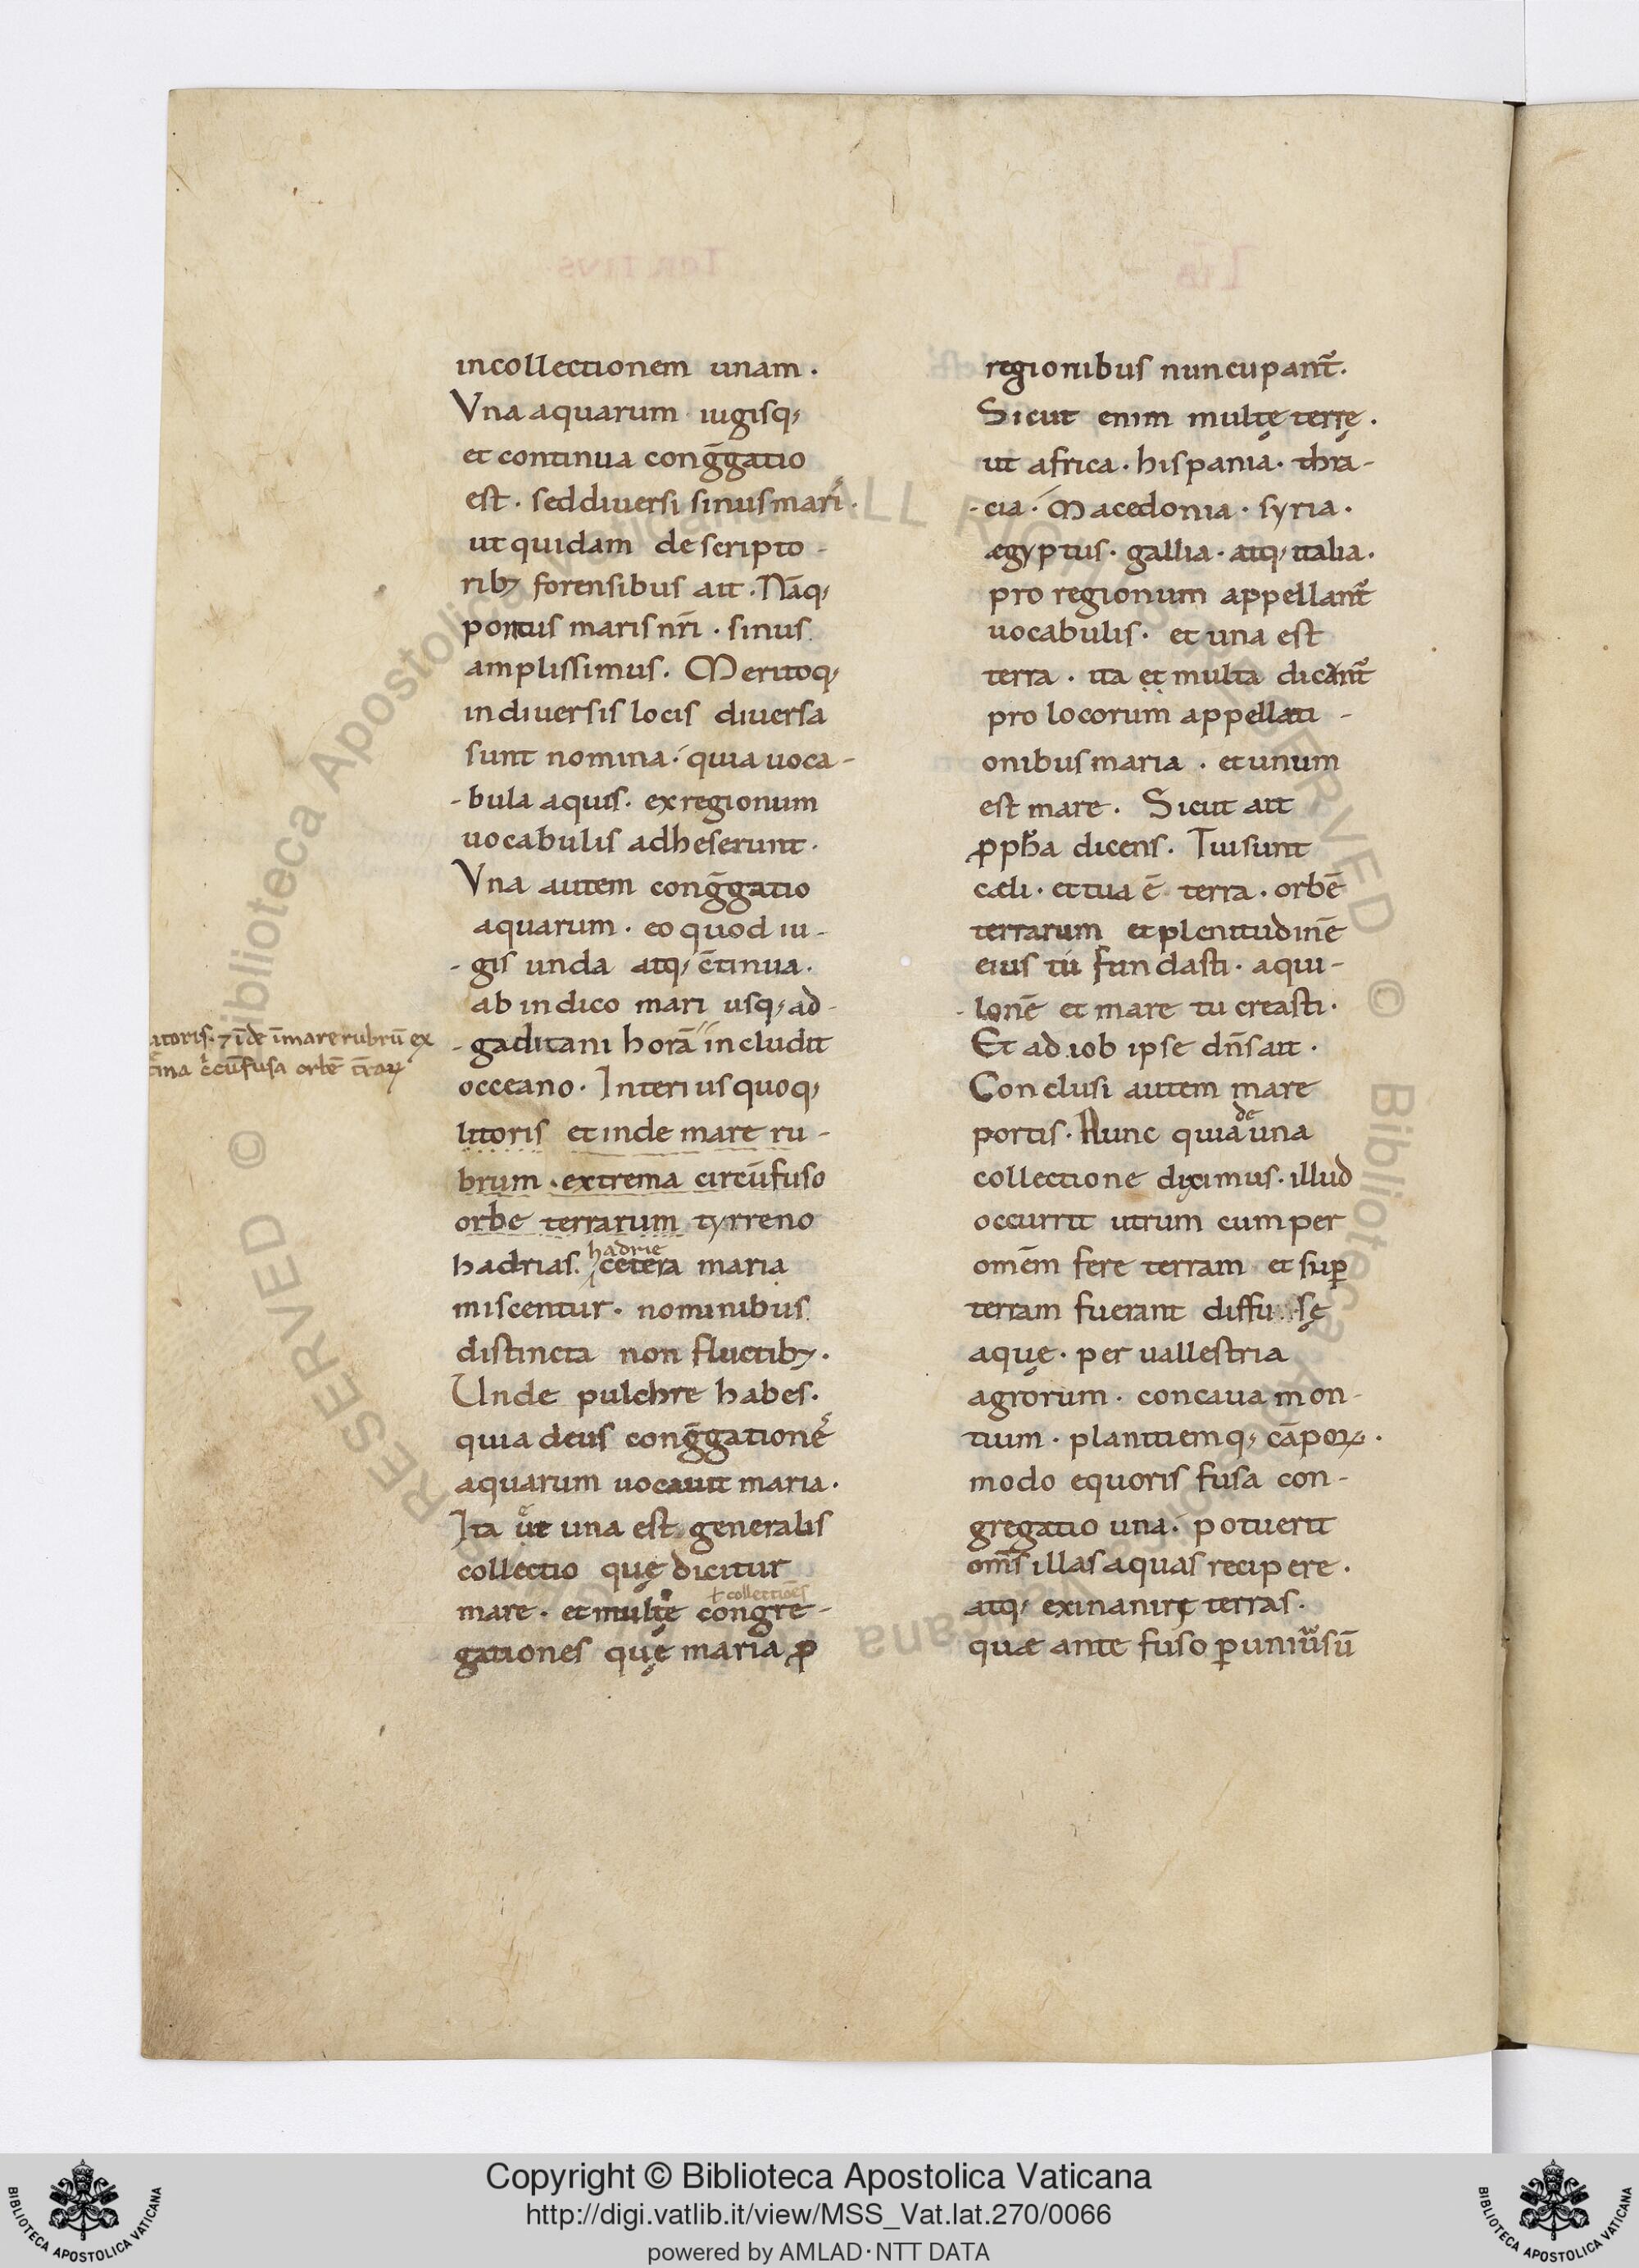 incollectionem unam ·
Vna aquarum iugisq;
et continua cong̅gatio
est · sed diuersi sinus mari ·
ut quidam descripto -
rib; forensibus ait · Nāq;
pontus maris nr̄i · sinus
amplissimus · Meritoq;
indiuersis locis diuersa
sunt nomina · quia uoca -
- bula aquis · exregionum
uocabulis adheserunt ·
Vna autem cong̅gatio
aquarum · eo quod iu -
- gis unda atq; c̄tinua ·
ab indico mari usq; ad -
- gaditani horā includit
occeano · Interius quoq;
litoris et inde mare ru -
brum · extrema circūfuso
orbe terrarum tyrreno
hadrie
hadrias · cetera maria
miscentur · nominibus
distincta non fluctib; ·
Unde pulchre habes ·
quia deus cong̅gatione
aquarum uocauit maria ·
Ita una est generalis
collectio quę dicitur
collectiōes
mare · et multe congre -
gationes quę maria ꝓ
itoris · ⁊ īde īmare rubrū ex
c̄cūfusa orbē
regionibus nuncupant᷑ ·
Sicut enim multę terrę ·
ut africa · hispania · thra -
- cia · Macedonia · syria ·
ægyptus · gallia · atq; italia ·
pro regionum appellant᷑
uocabulis · et una est
terra · ita et multa dicant᷑
pro locorum appellati -
onibus maria · et unum
est mare · Sicut ait
ꝓph̄a dicens · Tui sunt
cæli · et tua ē terra · orbē
terrarum et plenitudinē
eius tu fundasti · aqui -
- lonē et mare tu creasti ·
Et ad iob ipse dn̄s ait ·
Conclusi autem mare
de
portis · Nunc quia una
collectione diximus · illud
occurrit utrum cum per
omēm fere terram et suꝑ
terram fuerant diffu sę
aquę · per uallestria
agrorum · concaua mon -
tium · planitiemq; cāpoꝝ ·
modo equoris fusa con -
gregatio una · potuerit
om̄s illas aquas recipere ·
atq; exinanire terras ·
quæ ante fuso ꝑ uniu᷑sū
Copyright © Biblioteca Apostolica Vaticana
http://digi.vatlib.it/view/MSS_Vat.lat.270/0066
powered by AMLAD · NTT DATA
BIBLIOTECA APOSTOLICA VATICANA
BIBLIOTECA APOSTOLICA VATICANA